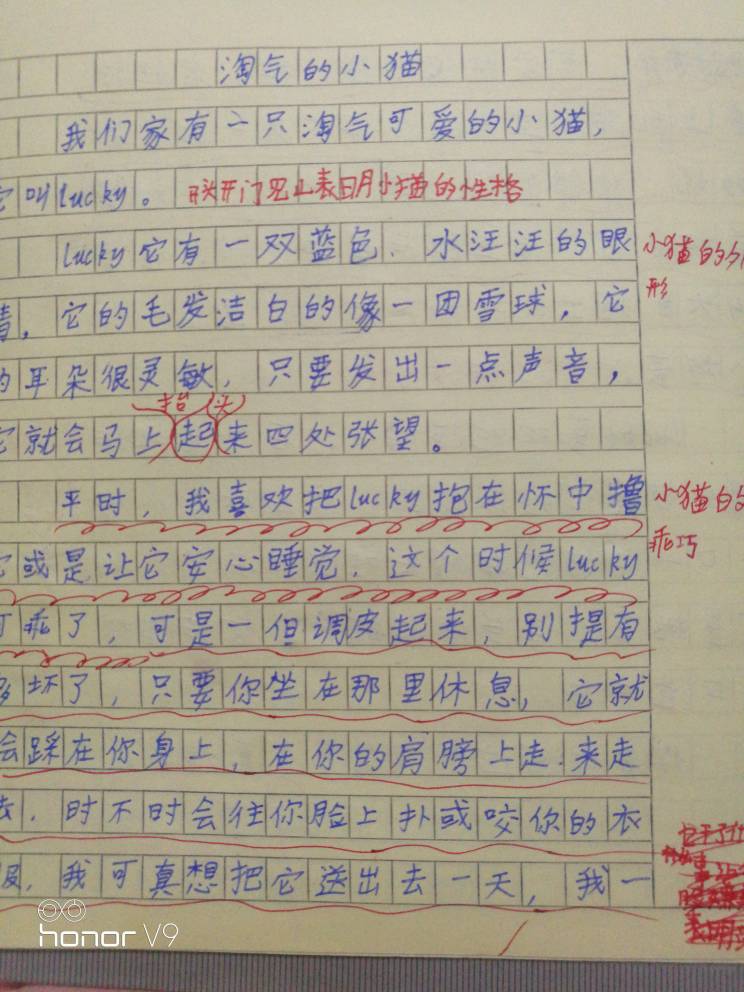 淘气的小猫
我们家有一只淘气可爱的小猫，
它叫lucky。 开头开门见山表明小猫的性格
lucky它有一双蓝色.水汪汪的眼 小猫的外
形
睛，它的毛发洁白的像一团雪球，它
的耳朵很灵敏，只要发出一点声音，
抬（头）
它就会马上起来四处张望。
平时，我喜欢把lucky抱在怀中撸 小猫的
乖巧
它或是让它安心睡觉.这个时候lucky
可乖了，可是一但调皮起来，别提有
多坏了，只要你坐在那里休息，它就
会踩在你身上，在你的肩膀上走.来走
去，时不时会往你脸上扑或咬你的衣
服，我可真想把它送出去一天，我一
honor V9